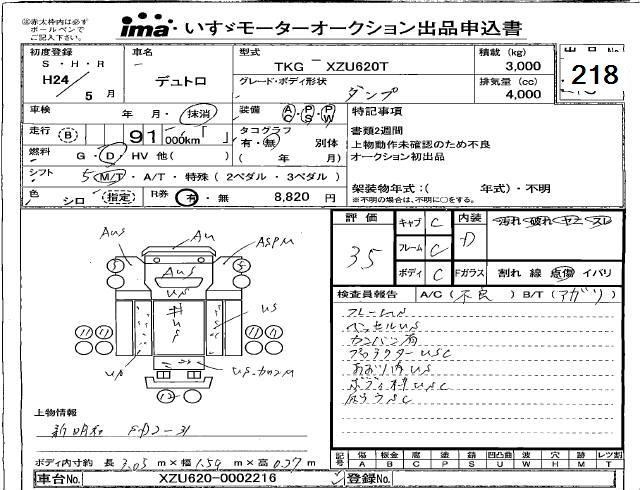 ※赤太枠内は必ず
ボールペンで
ご記入下さい。
ima いすゞモーターオークション出品申込書
初度登録 車名 型式 積載 (kg) 出品No.
S・H・R TKG - XZU620T 3,000
H24/5月 デュトロ グレード・ボディ形状 排気量 (cc) 218
ダンプ 4,000
車検 年 月・抹消 装備 AC・PS・PW 特記事項
走行 B 91 000km タコグラフ 書類2週間
有・無 別体 上物動作未確認のため不良
燃料 G・D・HV 他( ) ( 年 月) オークション初出品
シフト 5 M/T・A/T・特殊(2ペダル・3ペダル)
色 シロ (指定) R券 有・無 8,820 円 架装物年式:( 年式)・不明
※不明の場合は、不明に○をする。
評価 キャブ C 内装 汚れ 破れ ヤニ スレ
35 フレーム C D
ボディ C Fガラス 割れ 線 点傷 イバリ
検査員報告 A/C (不良) B/T (アガリ)
AUS AU ASPM
5 5
AUS
US
US
11 11 11 11
US
12
フレームUS
ベッセルUS
カンバン有
プロテクターUSC
あおり内US
上物情報
新明和
ボディ内寸約 長 3.05 m×幅 1.59 m×高 0.37 m
記号 傷 板金 腐 塗 錆 凹凸曲 波 穴 跡 レツ割
A B C P S U W H M T
車台No. XZU620-0002216 登録No.